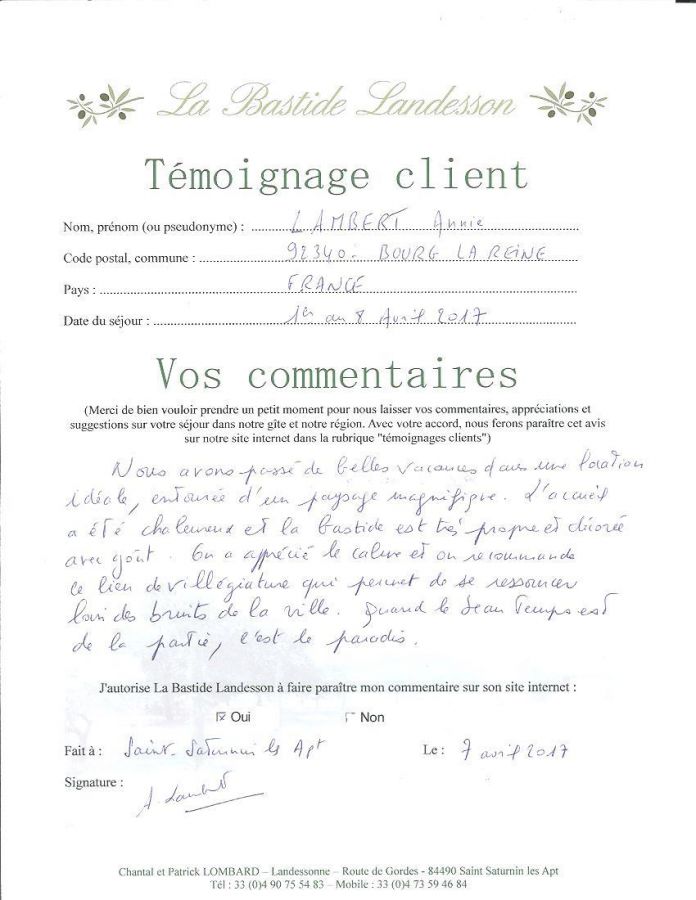 La Bastide Landesson
Témoignage client
Nom, prénom (ou pseudonyme) : LAMBERT Annie
Code postal, commune : 92340. BOURG LA REINE
Pays : FRANCE
Date du séjour : 1er au 8 Avril 2017
Vos commentaires
(Merci de bien vouloir prendre un petit moment pour nous laisser vos commentaires, appréciations et
suggestions sur votre séjour dans notre gîte et notre région. Avec votre accord, nous ferons paraître cet avis
sur notre site internet dans la rubrique "témoignages clients")
Nous avons passé de belles vacances dans une location
idéale, entourée d'un paysage magnifique. L'accueil
a été chaleureux et la bastide est très propre et décorée
avec goût. On a apprécié le calme et on recommande
ce lieu de villégiature qui permet de se ressourcer
loin des bruits de la ville. Quand le beau temps est
de la partie, c'est le paradis.
J'autorise La Bastide Landesson à faire paraître mon commentaire sur son site internet :
Oui Non
Fait à : Saint-Saturnin les Apt Le : 7 avril 2017
Signature : A. Lambert
Chantal et Patrick LOMBARD – Landessonne – Route de Gordes - 84490 Saint Saturnin les Apt
Tél : 33 (0)4 90 75 54 83 – Mobile : 33 (0)4 73 59 46 84